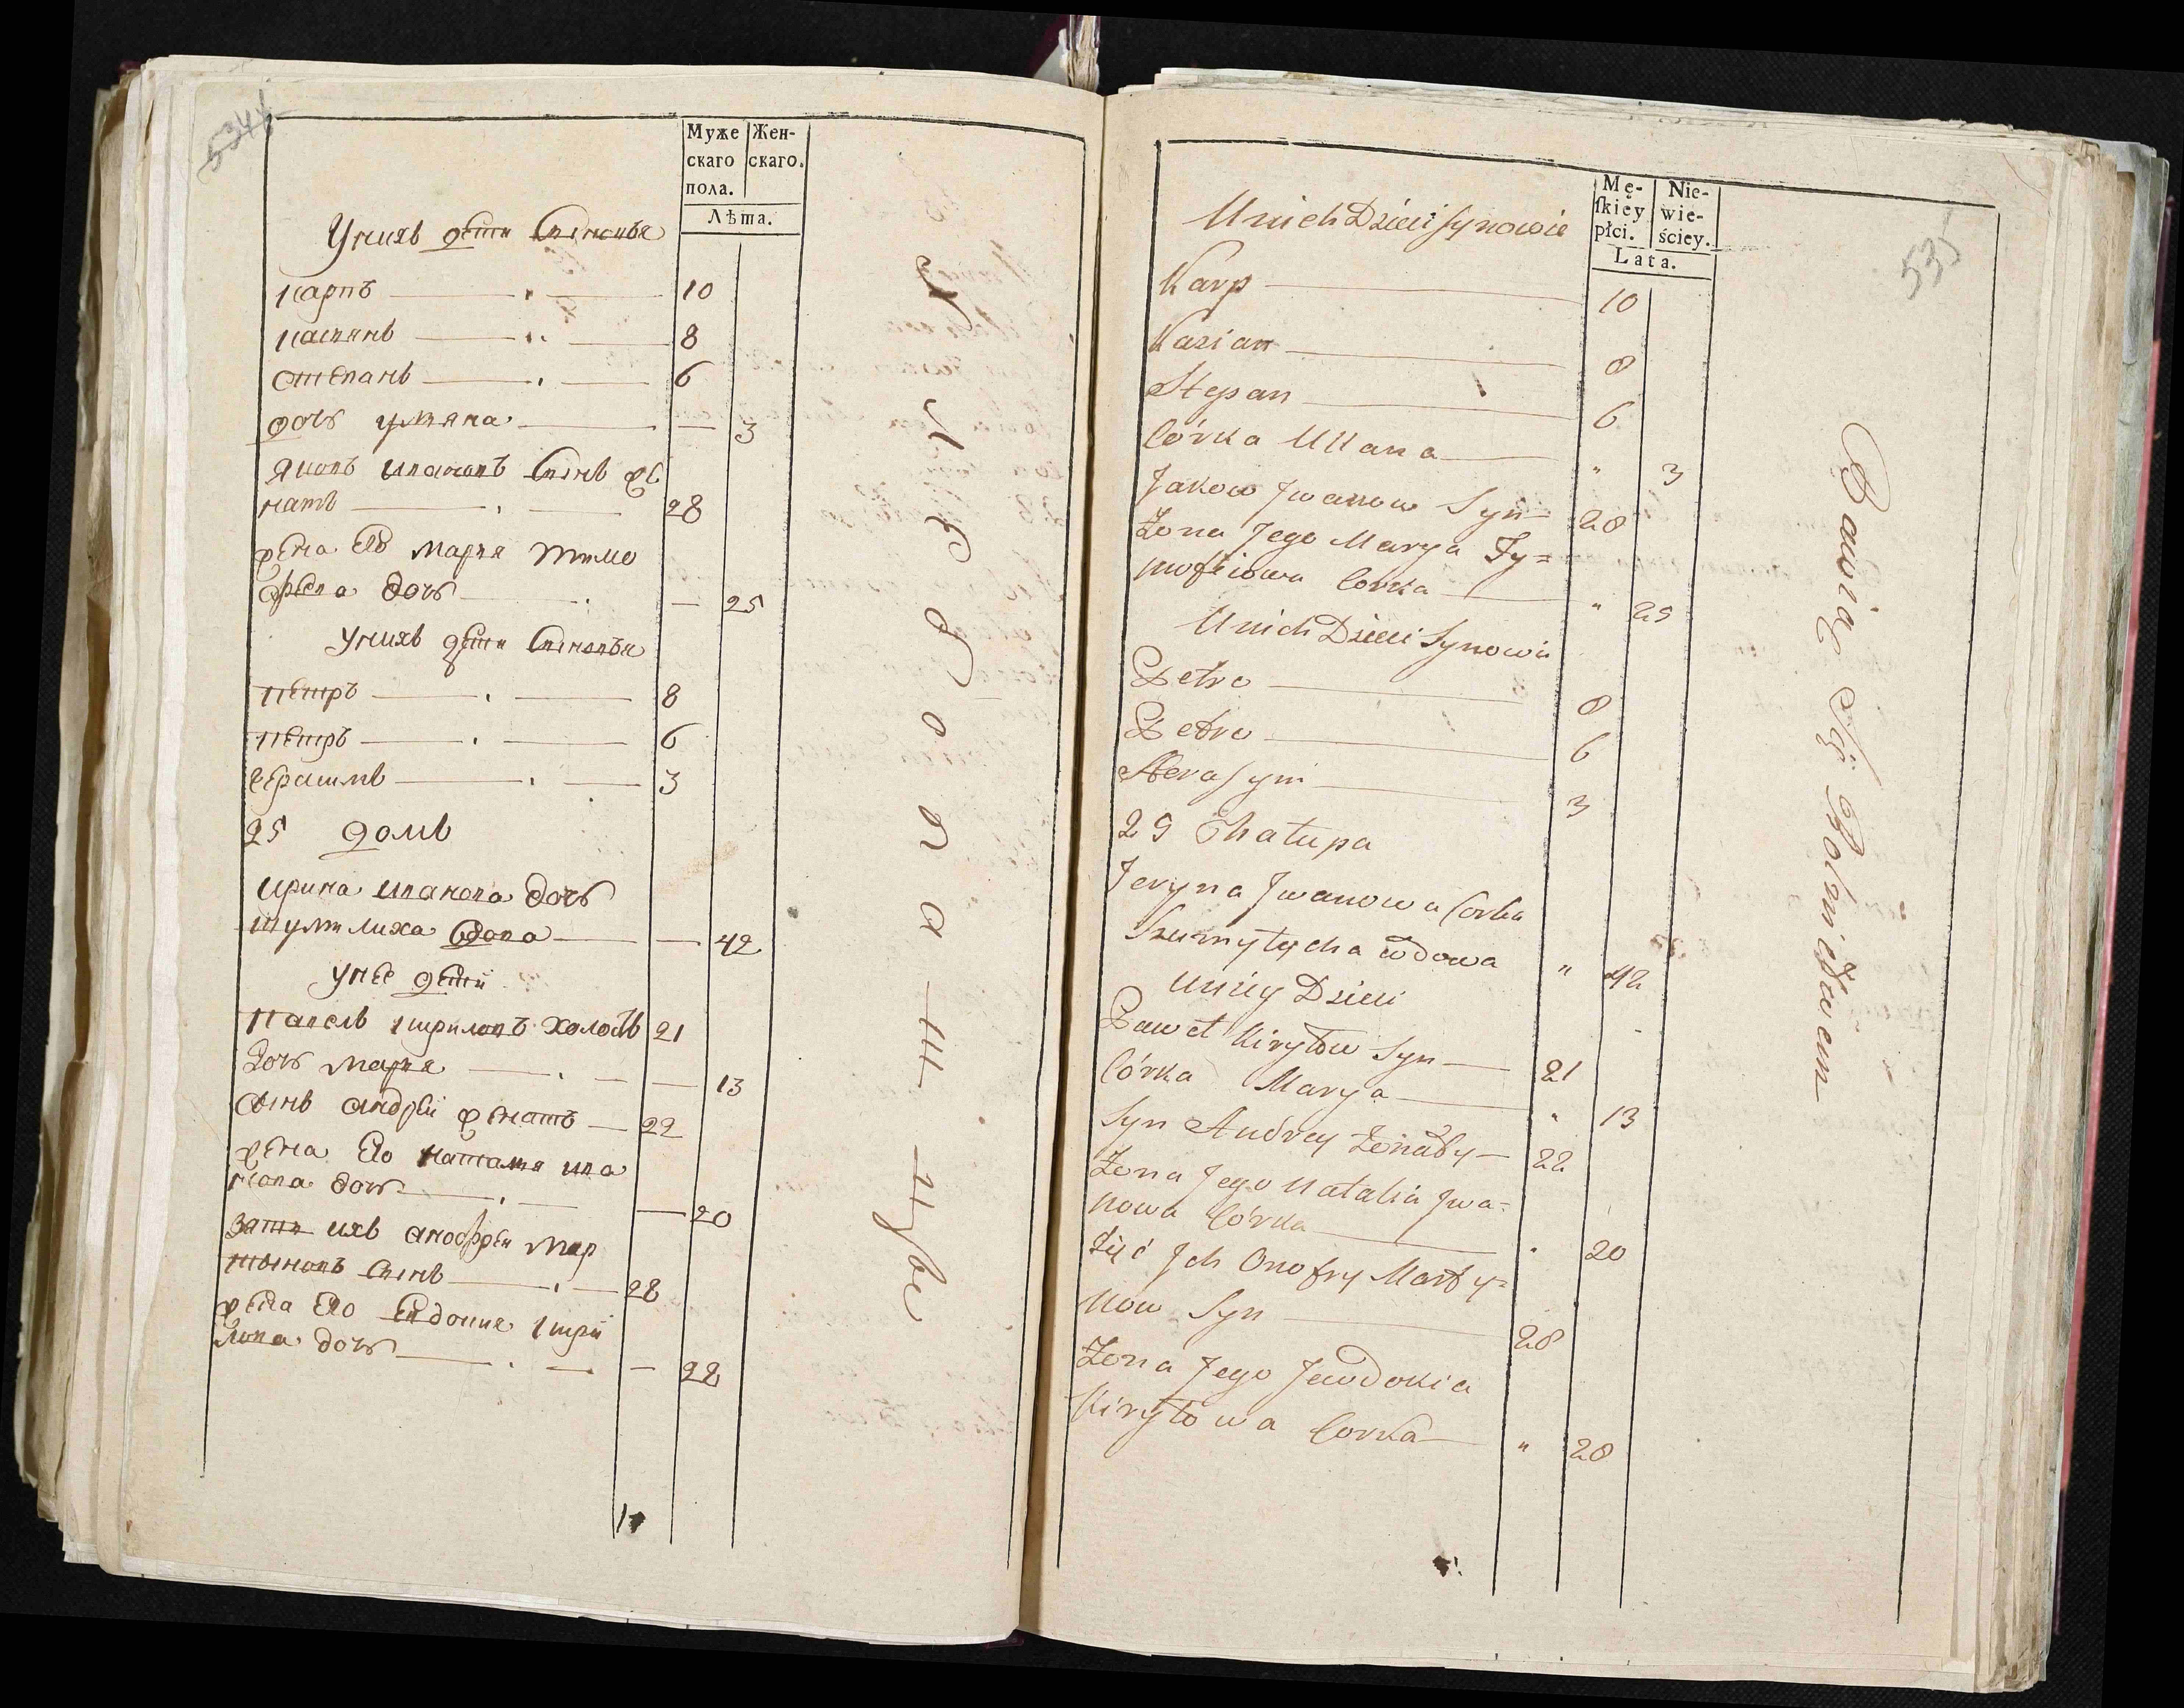 534
Муже
скаго
пола.
Жен-
скаго.
Лѣта.
Унихъ дети Синовья
карпъ — 10
касиянъ — 8
степанъ — 6
дочь уляна — — 3
яковъ ивановъ синъ же
натъ — 28
жена его мария тимо
феева дочь — — 25
Унихъ дети Синовья
петръ — 8
петръ — 6
герасимъ — 3
25 домъ
ирина иванова дочь
шумилиха вдова — — 42
унее детй
павелъ кириловъ холостъ 21
дочь мария — — 13
сынъ андрей женатъ — 22
жена его наталия ива
нова дочь — — 20
зять ихъ анофрей мар
тыновъ синъ — 28
жена его евдокия кири
лова дочь — — 22
535
Mę-
ſkiey
płci.
Nie-
wie-
ściey.
Lata.
Unich Dzieci Synowie
Karp — 10
Kasian — 8
Stepan — 6
Córka Ullana — " 3
Jakow Jwanow Syn — 28
Żona Jego Marya Ty=
mofiiowa Corka — " 25
Unich Dzieci Synowie
Petro — 8
Petro — 6
Herasym — 3
25 Chałupa
Jeryna Jwanowa Corka
Szumyłycha wdowa " 42
Uniey Dzieci
Paweł Kiryłow Syn — 21
Córka Marya — " 13
Syn Andrey Żonaty — 22
Żona Jego Natalia Jwa=
nowa Córka — " 20
Zięć Jch Onofry Marty=
now Syn — 28
Żona Jego Jewdokia
Kiryłowa Corka — " 28